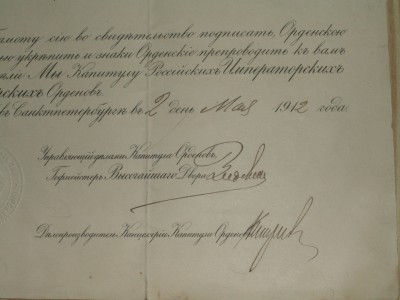 грамоту сію во свидѣтельство подписать, Орденскою
укрѣпить и знаки Орденскіе препроводить къ вамъ
Мы Капитулу Россійскихъ Императорскихъ
Орденовъ.
въ Санктпетербургѣ въ 2 день Мая 1912 года
Управляющій дѣлами Капитула Орденовъ,
Гофмейстеръ Высочайшаго Двора
Дѣлопроизводитель Канцеляріи Капитула Орденовъ